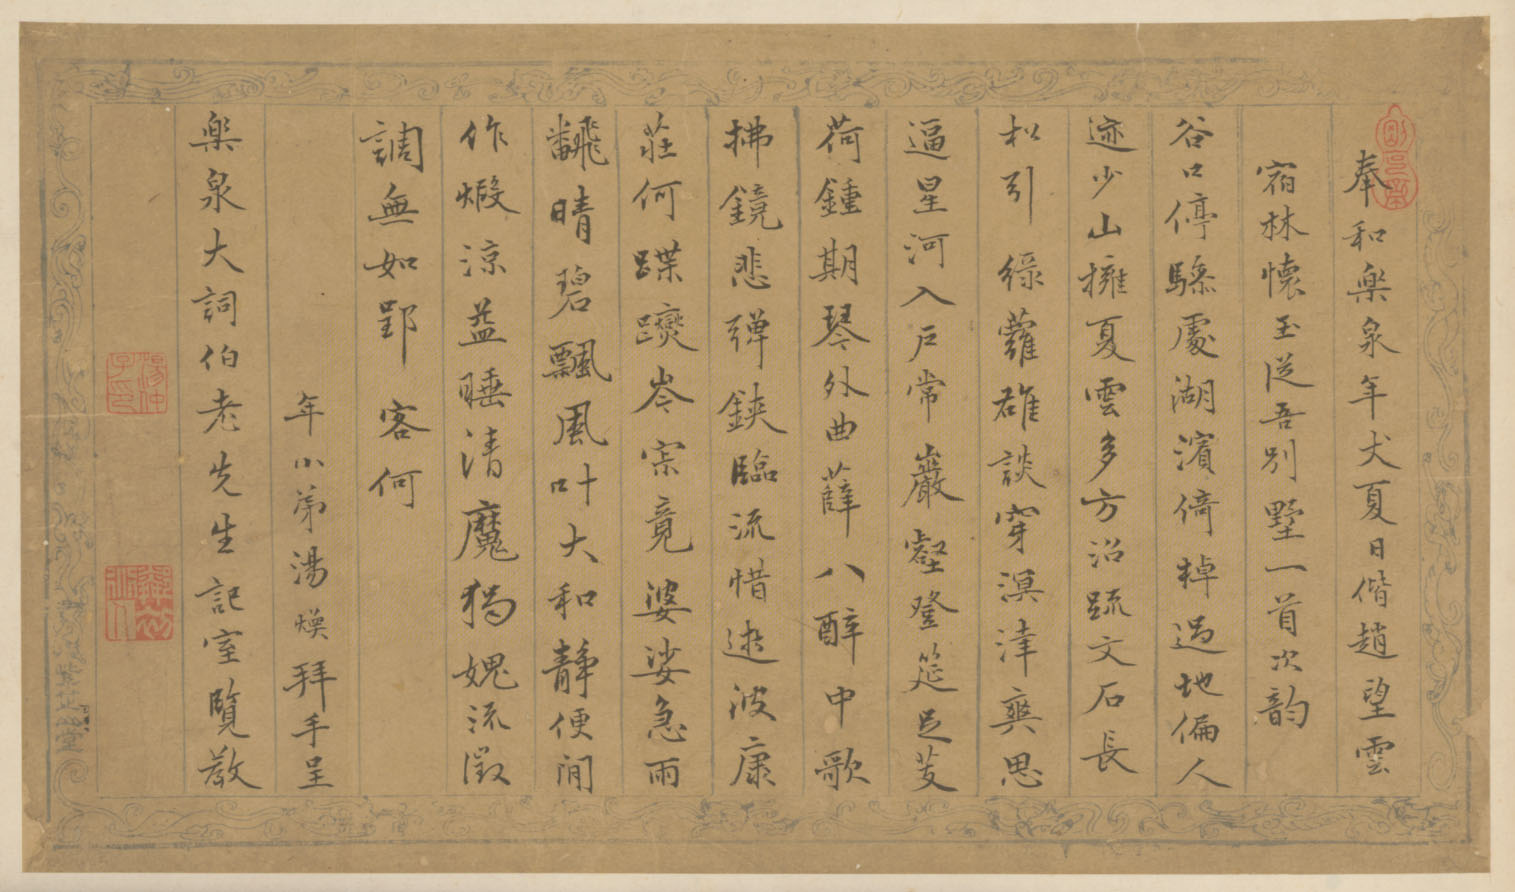 奉和樂泉年丈夏日偕趙望雲
宿林懷玉從吾別墅一首次韵
谷口停驂處湖濱倚棹過地偏人
迹少山擁夏雲多方沼疏文石長
松引綠蘿雄談穿溟涬爽思
逼星河入戶常巖壑登筵足芰
荷鍾期琴外曲薛八醉中歌
拂鏡悲彈鋏臨流惜逝波康
莊何蹀躞岑寂竟婆娑急雨
翻晴碧飄風叶大和靜便閒
作煅涼益睡清魔獨媿流徵
調無如郢客何
年小弟湯煥拜手呈
樂泉大詞伯老先生記室覽教